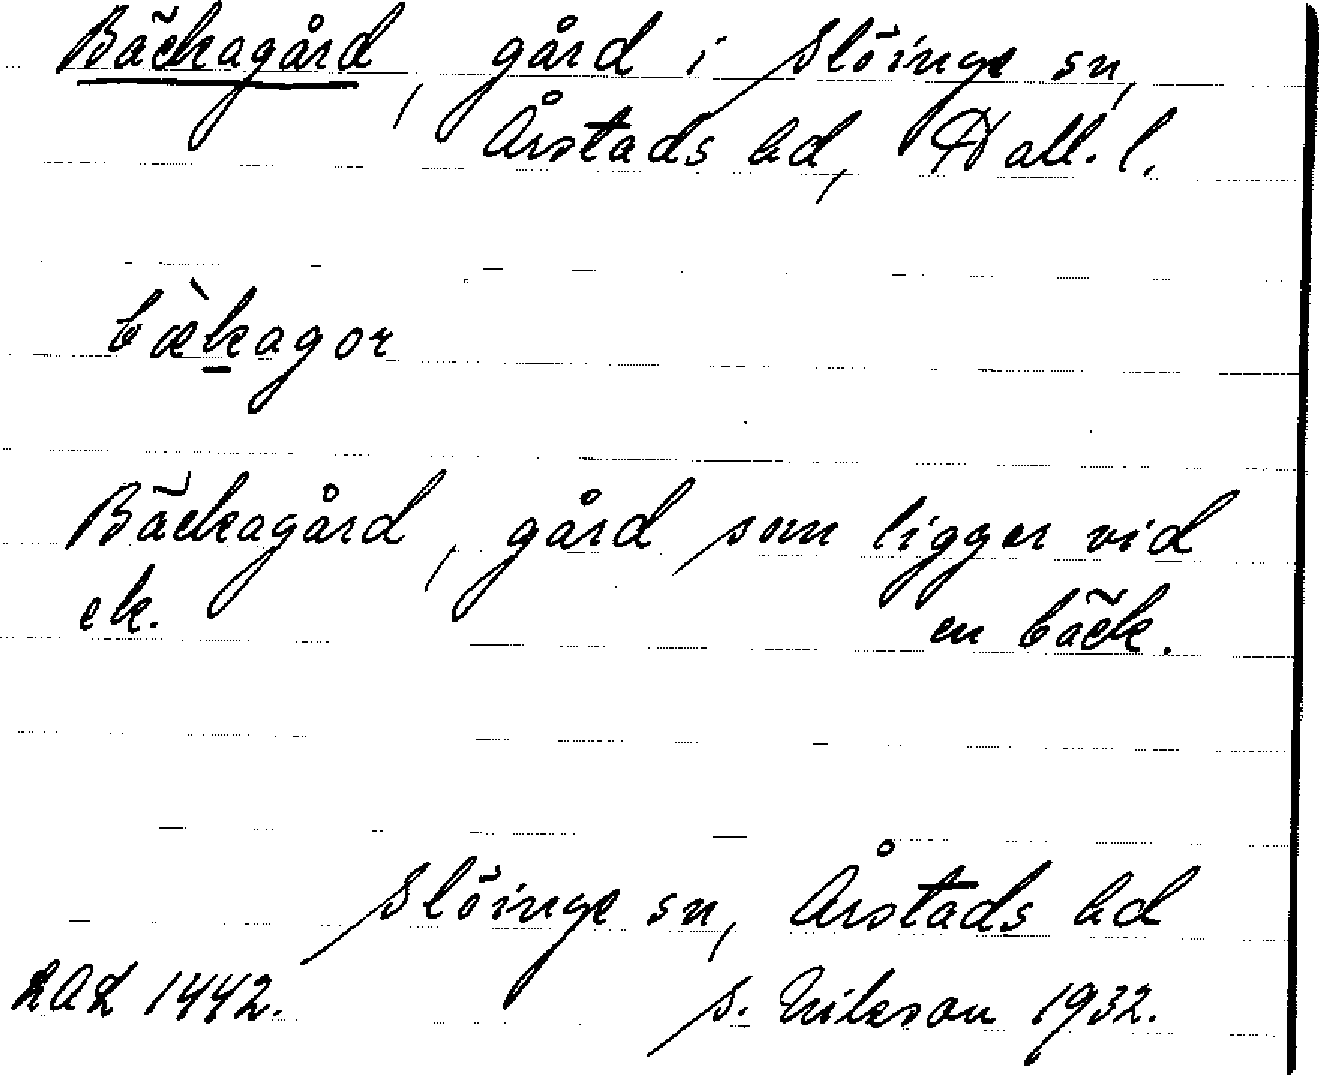 Bäckagård, gård i Slöinge sn,
Årstads hd, Hall. l.
bæ̀kagor
Bäckagård, gård som ligger vid
ek. en bäck.
Slöinge sn, Årstads hd
LAL 1442. S. Nilsson 1932.